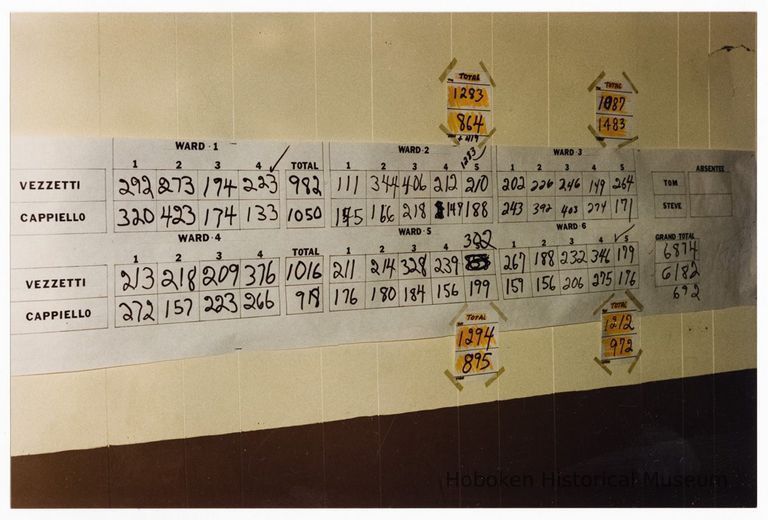 TOTAL
1283
864
+ 419
TOTAL
1087
1483
WARD · 1
1 2 3 4 TOTAL
VEZZETTI 292 273 194 223 982
CAPPIELLO 320 423 174 133 1050
WARD · 2
1 2 3 4 5
1283
111 344 406 212 210
166 218 149 188
WARD · 3
1 2 3 4 5
202 226 246 149 264
243 392 403 274 171
ABSENTEE
TOM
STEVE
WARD · 4
1 2 3 4 TOTAL
VEZZETTI 213 218 209 376 1016
CAPPIELLO 272 157 223 266 918
WARD · 5
1 2 3 4 5
322
211 214 328 239
176 180 184 156 199
WARD · 6
1 2 3 4 5
267 188 232 346 179
159 156 206 275 176
GRAND TOTAL
6874
6182
692
TOTAL
1294
895
TOTAL
1212
972
Hoboken Historical Museum